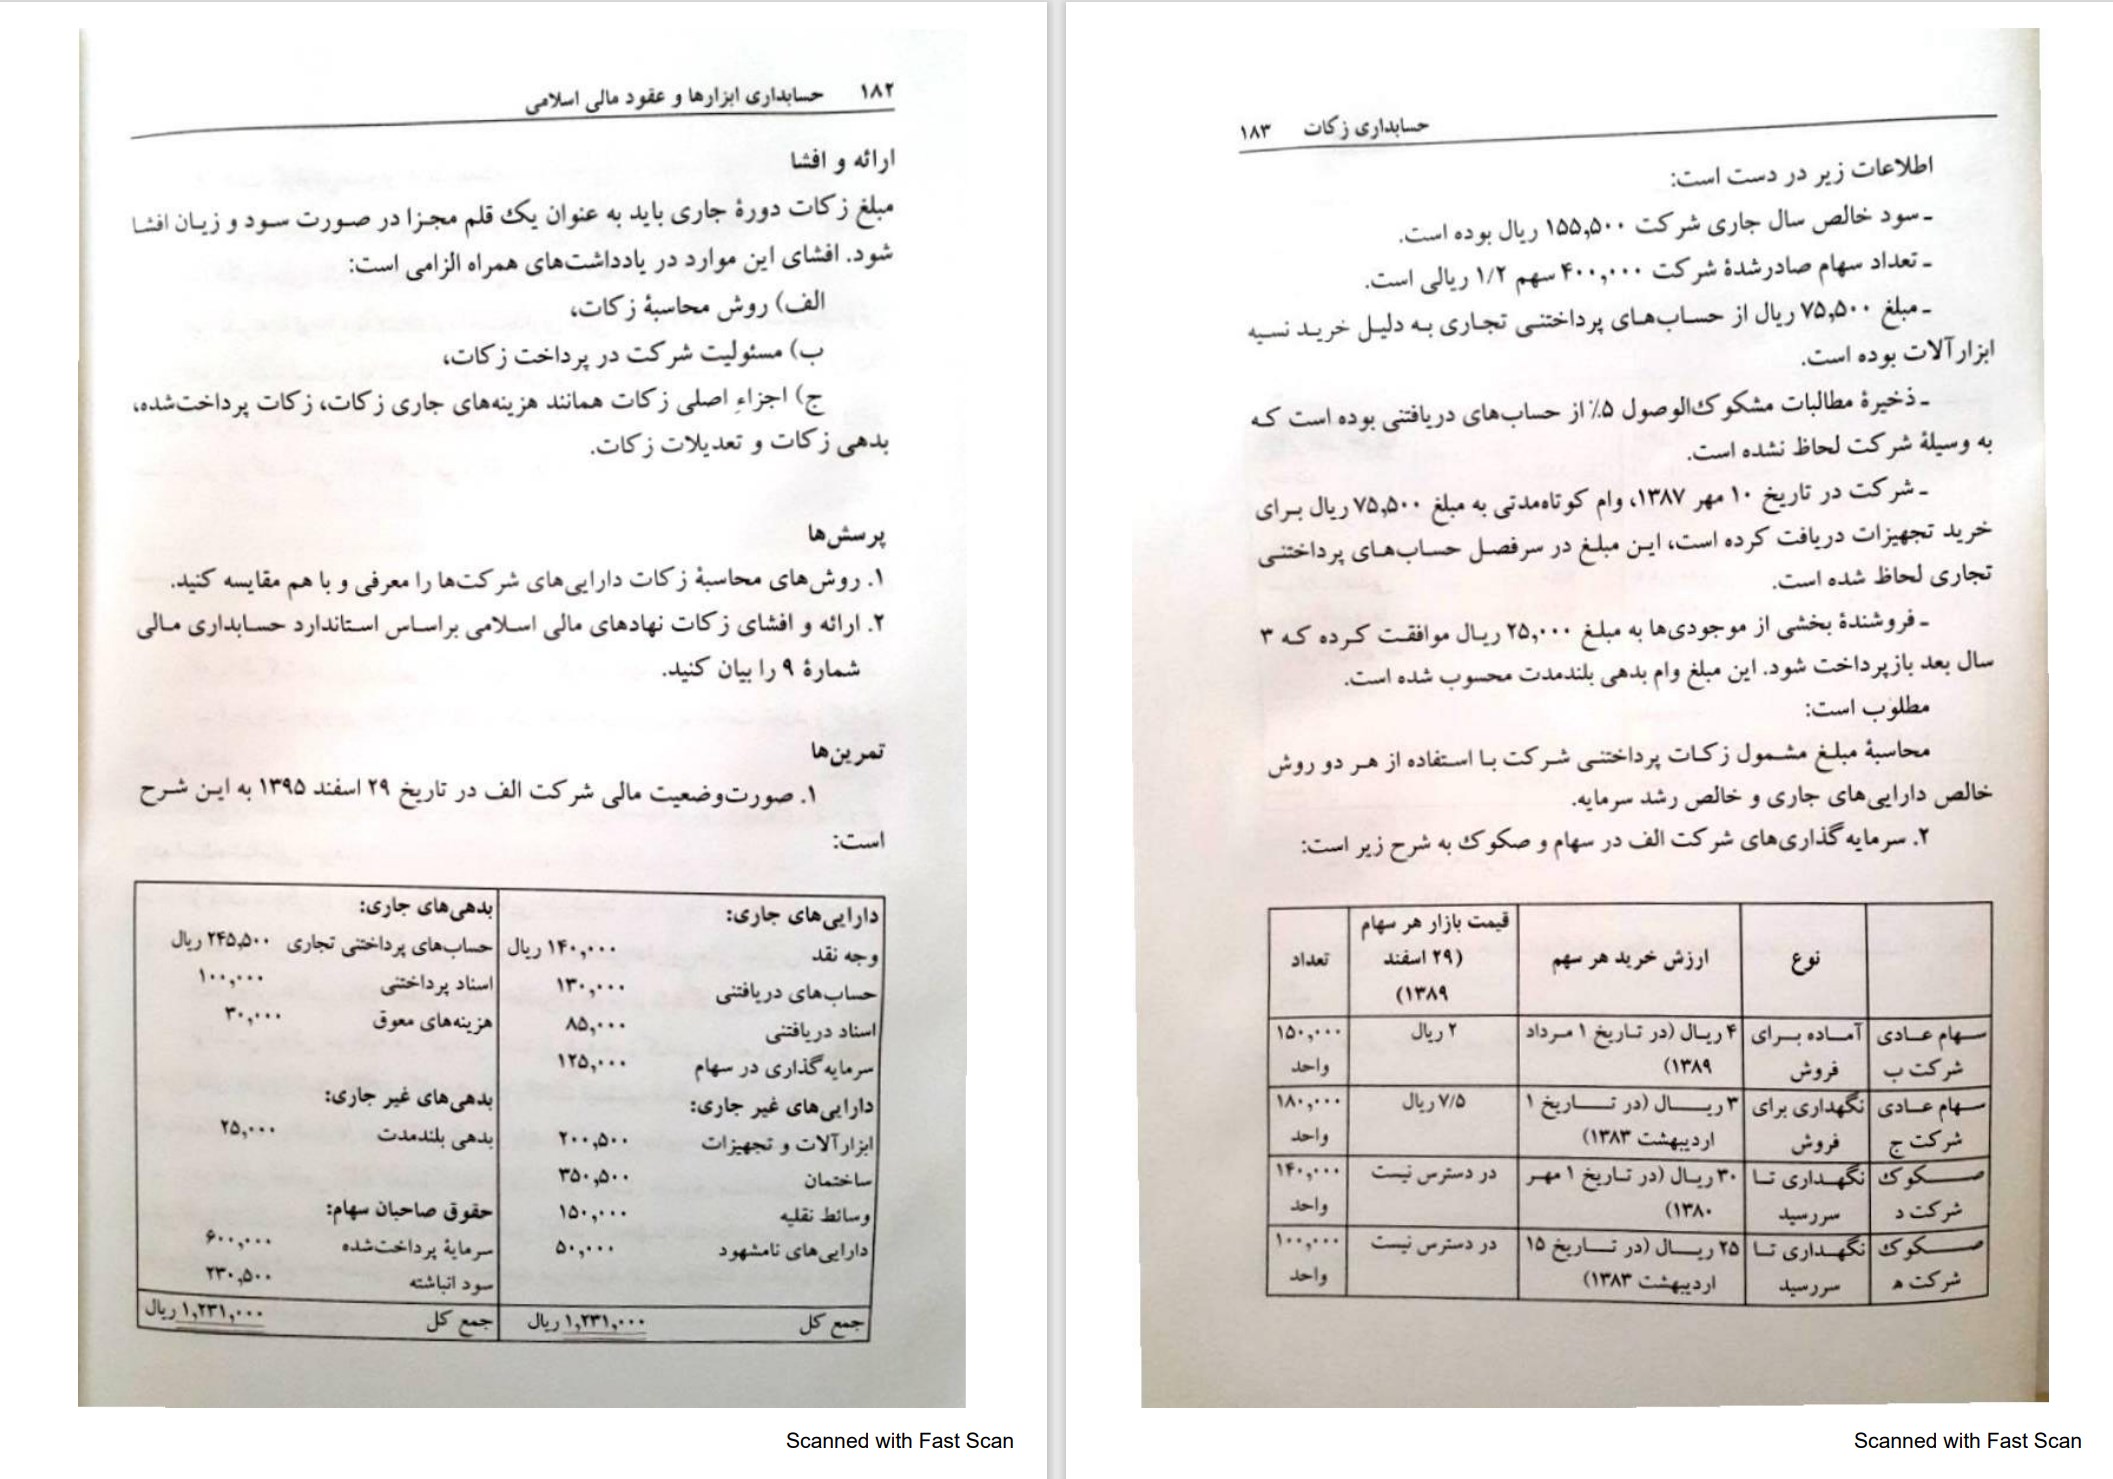 ۱۸۲ حسابداری ابزارها و عقود مالی اسلامی
ارائه و افشا
مبلغ زکات دورهٔ جاری باید به عنوان یک قلم مجزا در صورت سود و زیان افشا
شود. افشای این موارد در یادداشت‌های همراه الزامی است:
الف) روش محاسبهٔ زکات،
ب) مسئولیت شرکت در پرداخت زکات،
ج) اجزاءِ اصلی زکات همانند هزینه‌های جاری زکات، زکات پرداخت‌شده،
بدهی زکات و تعدیلات زکات.
پرسش‌ها
۱. روش‌های محاسبهٔ زکات دارایی‌های شرکت‌ها را معرفی و با هم مقایسه کنید.
۲. ارائه و افشای زکات نهادهای مالی اسلامی براساس استاندارد حسابداری مالی
شمارهٔ ۹ را بیان کنید.
تمرین‌ها
۱. صورت‌وضعیت مالی شرکت الف در تاریخ ۲۹ اسفند ۱۳۹۵ به این شرح
است:
دارایی‌های جاری: بدهی‌های جاری:
وجه نقد ۱۴۰,۰۰۰ ریال حساب‌های پرداختنی تجاری ۲۴۵,۵۰۰ ریال
حساب‌های دریافتنی ۱۳۰,۰۰۰ اسناد پرداختنی ۱۰۰,۰۰۰
اسناد دریافتنی ۸۵,۰۰۰ هزینه‌های معوق ۳۰,۰۰۰
سرمایه‌گذاری در سهام ۱۲۵,۰۰۰
دارایی‌های غیر جاری: بدهی‌های غیر جاری:
ابزارآلات و تجهیزات ۲۰۰,۵۰۰ بدهی بلندمدت ۲۵,۰۰۰
ساختمان ۳۵۰,۵۰۰
وسائط نقلیه ۱۵۰,۰۰۰ حقوق صاحبان سهام:
دارایی‌های نامشهود ۵۰,۰۰۰ سرمایهٔ پرداخت‌شده ۶۰۰,۰۰۰
سود انباشته ۲۳۰,۵۰۰
جمع کل ۱,۲۳۱,۰۰۰ ریال جمع کل ۱,۲۳۱,۰۰۰ ریال
Scanned with Fast Scan
حسابداری زکات ۱۸۳
اطلاعات زیر در دست است:
ـ سود خالص سال جاری شرکت ۱۵۵,۵۰۰ ریال بوده است.
ـ تعداد سهام صادرشدهٔ شرکت ۴۰۰,۰۰۰ سهم ۱/۲ ریالی است.
ـ مبلغ ۷۵,۵۰۰ ریال از حساب‌های پرداختنی تجاری به دلیل خرید نسیه
ابزارآلات بوده است.
ـ ذخیرهٔ مطالبات مشکوک‌الوصول ۵٪ از حساب‌های دریافتنی بوده است که
به وسیلهٔ شرکت لحاظ نشده است.
ـ شرکت در تاریخ ۱۰ مهر ۱۳۸۷، وام کوتاه‌مدتی به مبلغ ۷۵,۵۰۰ ریال برای
خرید تجهیزات دریافت کرده است، این مبلغ در سرفصل حساب‌های پرداختنی
تجاری لحاظ شده است.
ـ فروشندهٔ بخشی از موجودی‌ها به مبلغ ۲۵,۰۰۰ ریال موافقت کرده که ۳
سال بعد بازپرداخت شود. این مبلغ وام بدهی بلندمدت محسوب شده است.
مطلوب است:
محاسبهٔ مبلغ مشمول زکات پرداختنی شرکت با استفاده از هر دو روش
خالص دارایی‌های جاری و خالص رشد سرمایه.
۲. سرمایه‌گذاری‌های شرکت الف در سهام و صکوک به شرح زیر است:
نوع ارزش خرید هر سهم قیمت بازار هر سهام (۲۹ اسفند ۱۳۸۹) تعداد
سهام عادی شرکت ب آماده برای فروش ۴ ریال (در تاریخ ۱ مرداد ۱۳۸۹) ۲ ریال ۱۵۰,۰۰۰ واحد
سهام عادی شرکت ج نگهداری برای فروش ۳ ریال (در تاریخ ۱ اردیبهشت ۱۳۸۳) ۷/۵ ریال ۱۸۰,۰۰۰ واحد
صکوک شرکت د نگهداری تا سررسید ۳۰ ریال (در تاریخ ۱ مهر ۱۳۸۰) در دسترس نیست ۱۴۰,۰۰۰ واحد
صکوک شرکت ه نگهداری تا سررسید ۲۵ ریال (در تاریخ ۱۵ اردیبهشت ۱۳۸۳) در دسترس نیست ۱۰۰,۰۰۰ واحد
Scanned with Fast Scan